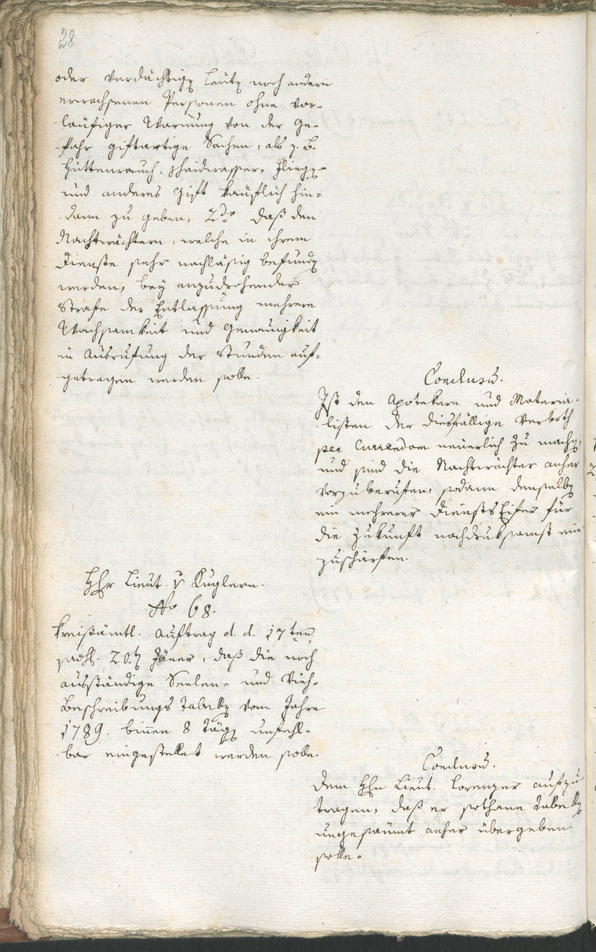 28
oder verdächtige Leute noch andern
erwachsenen Personen ohne vor-
läufiger Warnung von der Ge-
fahr giftartige Sachen, als z. B.
Hüttenrauch, Shaidwasser, Flieg-
und anderes Gift käuflich hin-
dann zu geben, 2do daß den
Nachtwächtern, welche in ihrem
Dienste sehr nachläsig befunden
werden, bey anzudrohender
Strafe der Entlassung mehrere
Wachsamkeit und Genauigkeit
in Ausrufung der Stunden auf-
getragen werden solle.
Conclusum.
Ist den Apotekern und Materia-
listen der diesfällige Verboth
per Currendam neuerlich zu machen,
und sind die Nachtwächter anher
vorzuberufen, sodann denselben
ein mehrerer Dienst Eifer für
die Zukunft nachdruksamst ein
zuschärfen.
Hr Lieut. v Kuglern.
No 68.
Kreisämtl. Auftrag d. d. 17ten
praes. 20t Jäner, daß die noch
ausständige Seelen- und Vieh-
Beschreibungs Tabelle vom Jahre
1789. binnen 8 Tägen unfehl-
bar eingestellet werden solle.
Conclusum.
Dem Hrn Lieut. Lorenzer aufzu
tragen, daß er sothane Tabelle
ungesäumt anher übergeben
solle.